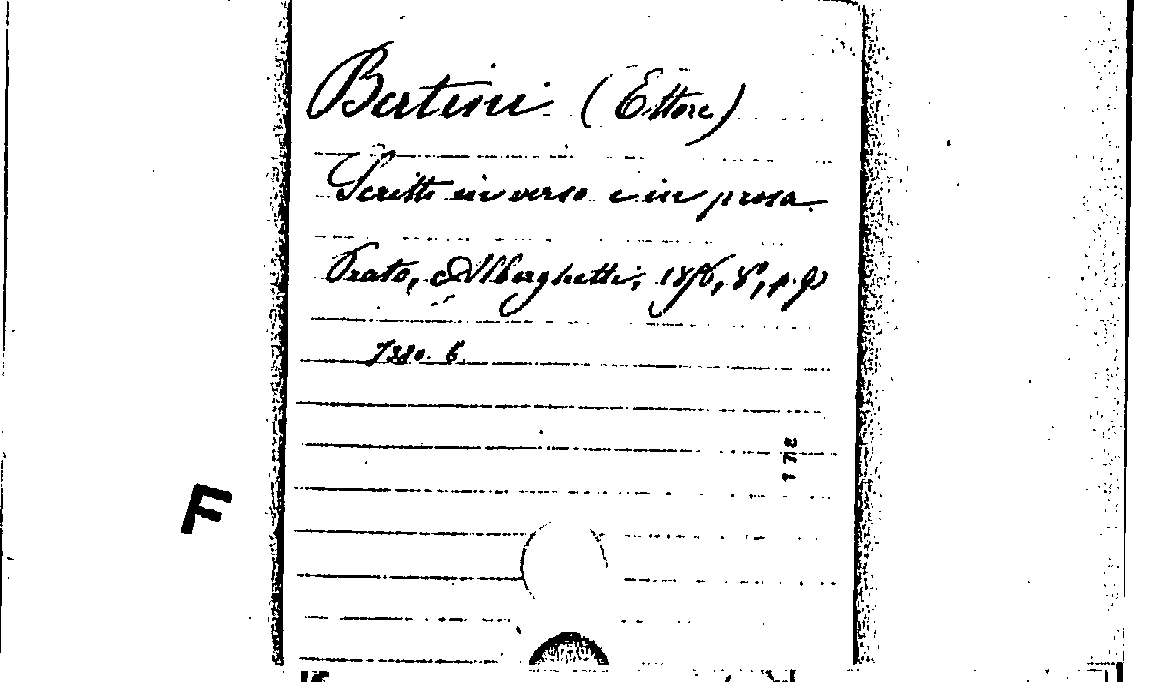 Bertini (Ettore)
Scritti in verso e in prosa.
Prato, Alberghetti, 1876, 8°, p.
7380. 6.
178
F